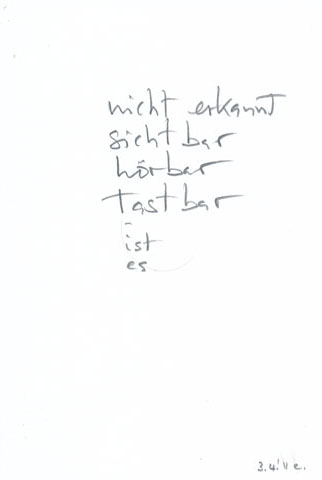 nicht erkannt
sichtbar
hörbar
tastbar
-
ist
es